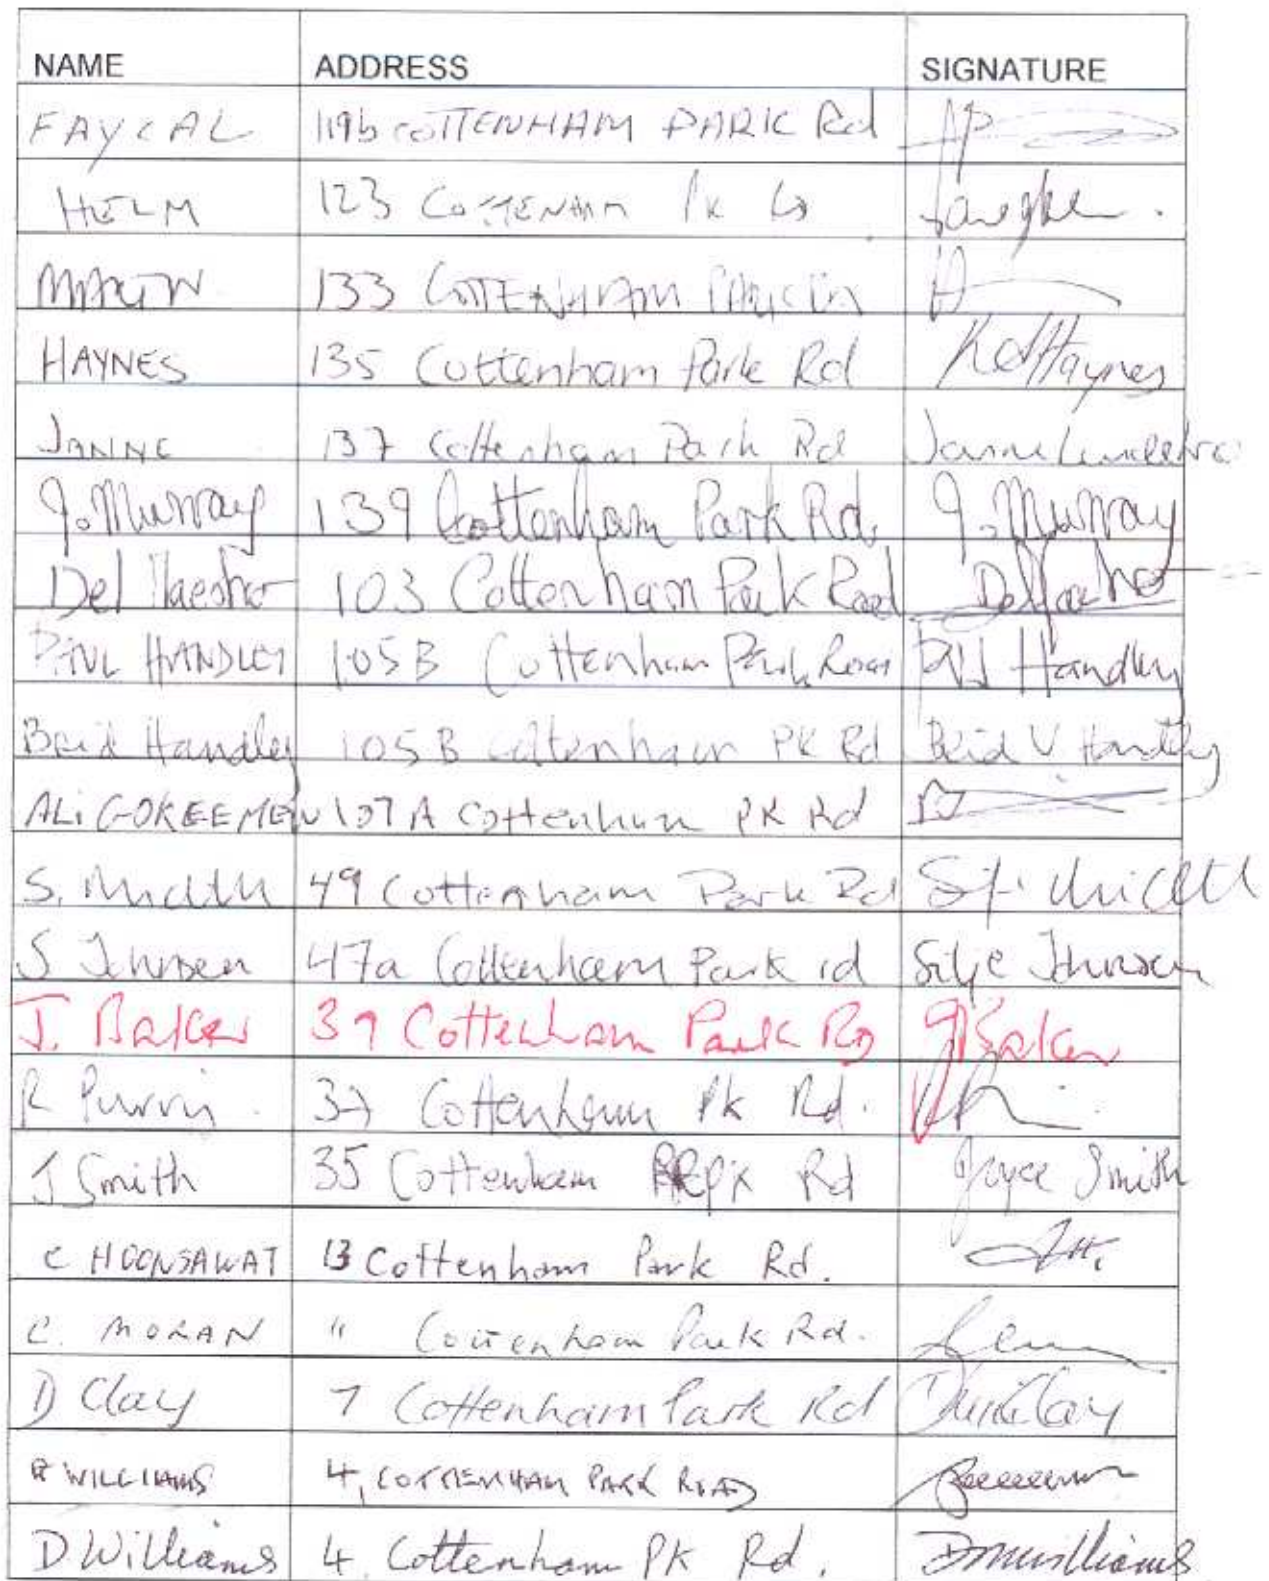 NAME ADDRESS SIGNATURE
FAYCAL 119b COTTENHAM PARK Rd
HELM 123 COTTENHAM Pk
MARTIN 133 COTTENHAM PARK
HAYNES 135 Cottenham Park Rd Haynes
JANNE 137 Cottenham Park Rd Janne
J. Murray 139 Cottenham Park Rd. J. Murray
Del Maestro 103 Cottenham Park Road
PAUL HANDLEY 105B Cottenham Park Road Handley
Brid Handley 105B Cottenham PK Rd Brid V Handley
ALI GOKEEMEN 107A Cottenham PK Rd
S. 49 Cottenham Park Rd
S Johnsen 47a Cottenham Park rd Silje Johnsen
J. Baker 39 Cottenham Park Rd JBaker
R Purvis 37 Cottenham Pk Rd.
J Smith 35 Cottenham PK Rd Joyce Smith
C HOONSAWAT 13 Cottenham Park Rd.
C. MORAN " Cottenham Park Rd.
D Clay 7 Cottenham Park Rd Clay
WILLIAMS 4, COTTENHAM PARK ROAD
D Williams 4 Cottenham PK Rd. Williams